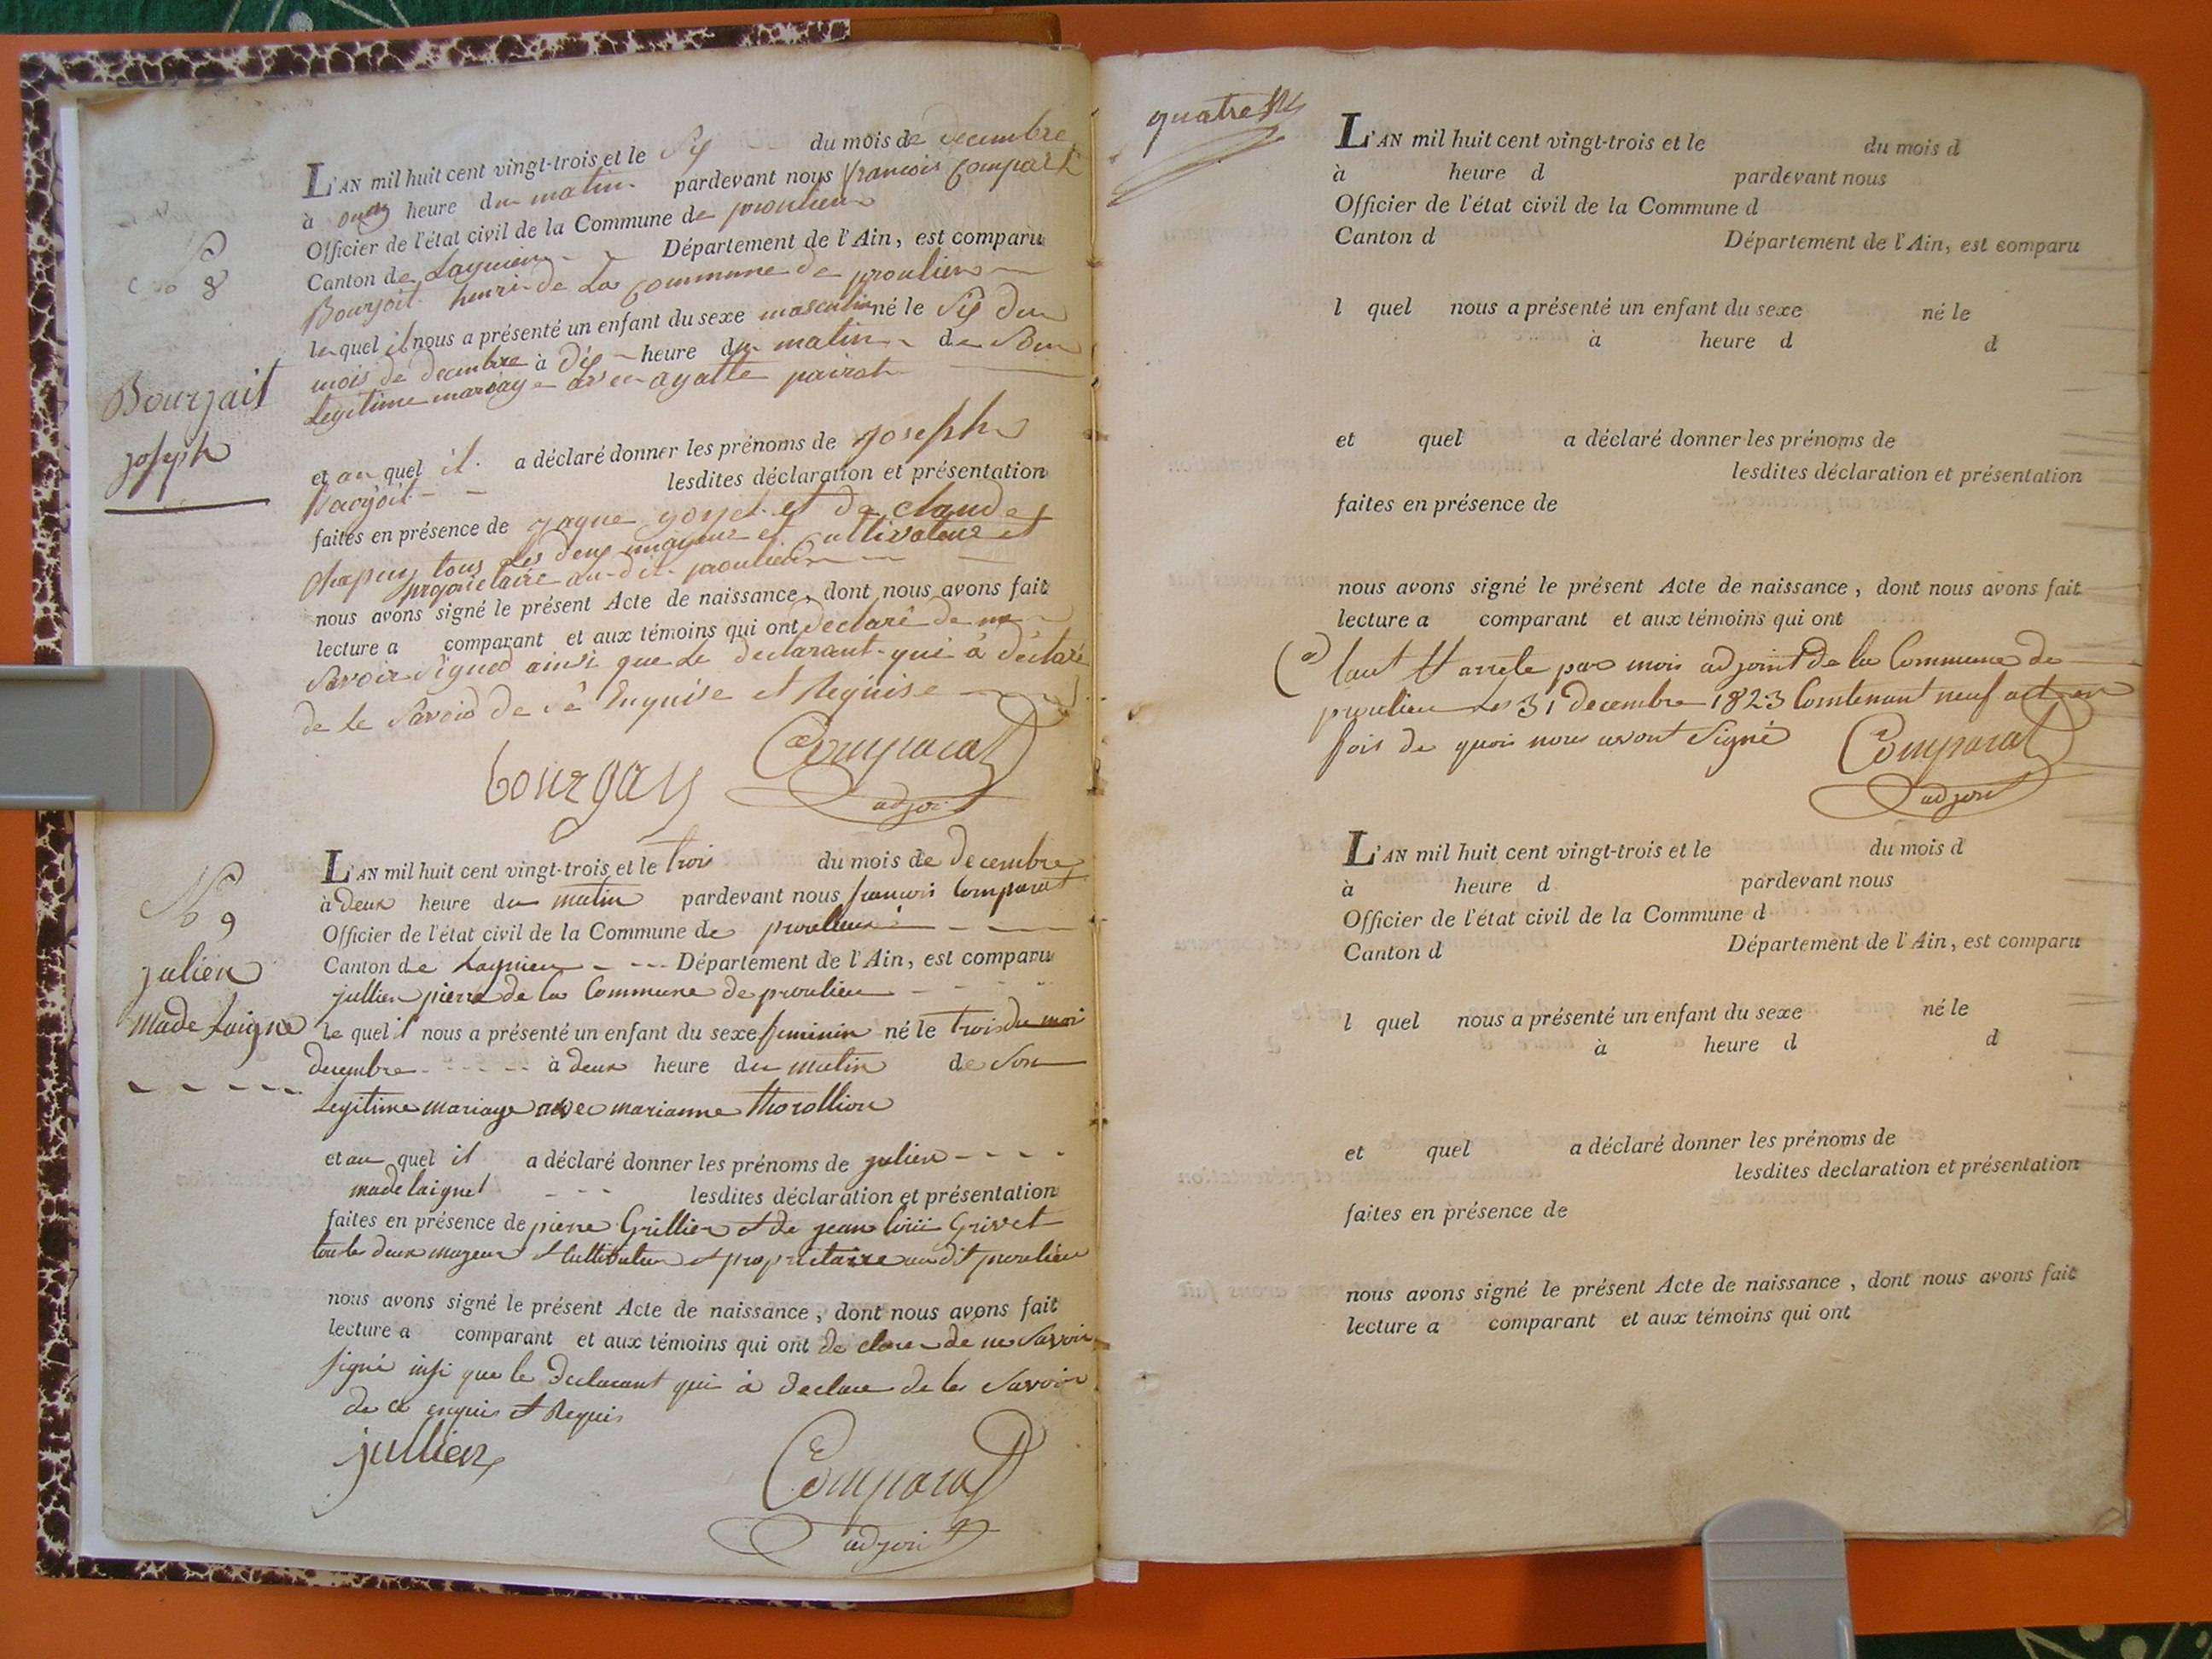 No 8
Bourjait
joseph
L'AN mil huit cent vingt-trois et le Six du mois de decembre
à onze heure du matin pardevant nous francois Comparat
Officier de l'état civil de la Commune de proulieu
Canton de Lagnieu Département de l'Ain, est comparu
Bourjoit henri de La Commune de proulieu
le quel il nous a présenté un enfant du sexe masculin né le Six du
mois de decembre à dix heure du matin de Son
Legitime mariage avec agatte
et au quel il a déclaré donner les prénoms de joseph
Bourjoit lesdites déclaration et présentation
faites en présence de et de claude
chapuy tous les deux majeur et Cultivateur et
proprietaire au-dit proulieu
nous avons signé le présent Acte de naissance, dont nous avons fait
lecture a comparant et aux témoins qui ont declaré de ne
Savoir Signed ainsi que Le declarant qui à declaré
de le Savoir de Sê Enquise et Requise
bourgay Comparat
adjoint
No 9
julien
Made Laigne
L'AN mil huit cent vingt-trois et le trois du mois de decembre
à deux heure du matin pardevant nous francois Comparat
Officier de l'état civil de la Commune de proulieu
Canton de Lagnieu Département de l'Ain, est comparu
jullien pierre de la Commune de proulieu
le quel il nous a présenté un enfant du sexe feminin né le trois du moi
decembre à deux heure du matin de Son
Legitime mariage avec marianne thorollion
et au quel il a déclaré donner les prénoms de julien
made laigne lesdites déclaration et présentation
faites en présence de pierre Grillier et de jean loui Grivet
tou les deux majeur et Cultivateur et proprietaire au dit proulieu
nous avons signé le présent Acte de naissance, dont nous avons fait
lecture a comparant et aux témoins qui ont de clare de ne Savoir
signé insi que le declarant qui à declare de les Savoir
de ce enquis et Requis
jullien Comparat
adjoint
quatre
L'AN mil huit cent vingt-trois et le du mois d
à heure d pardevant nous
Officier de l'état civil de la Commune d
Canton d Département de l'Ain, est comparu
l quel nous a présenté un enfant du sexe né le
à heure d d
et quel a déclaré donner les prénoms de
lesdites déclaration et présentation
faites en présence de
nous avons signé le présent Acte de naissance, dont nous avons fait
lecture a comparant et aux témoins qui ont
arrete par mois adjoint de la Commune de
proulieu Les 31 decembre 1823 Contenant neuf act en
fois de quois nous avont Signé Comparat
adjoint
L'AN mil huit cent vingt-trois et le du mois d
à heure d pardevant nous
Officier de l'état civil de la Commune d
Canton d Département de l'Ain, est comparu
l quel nous a présenté un enfant du sexe né le
à heure d d
et quel a déclaré donner les prénoms de
lesdites declaration et présentation
faites en présence de
nous avons signé le présent Acte de naissance, dont nous avons fait
lecture a comparant et aux témoins qui ont